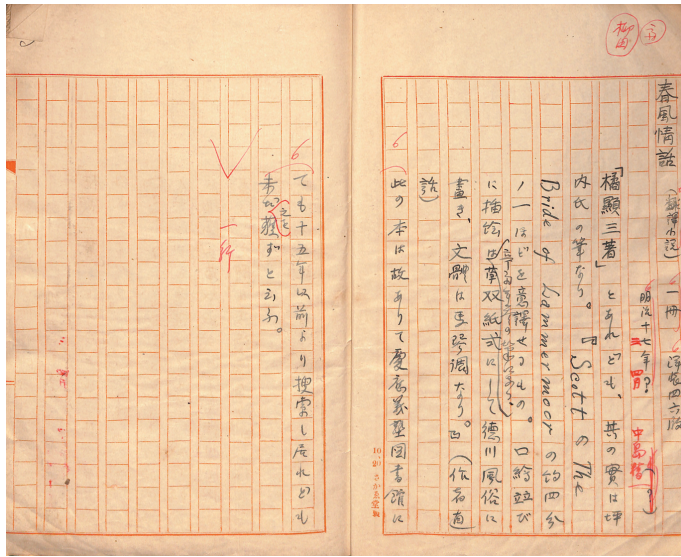 柳田
春風情話(飜譯小説)一冊 洋装四六版
明治十七年?四月 中島
「橘顯三著」とあれども、其の實は坪
内氏の筆なり。『Scott の The
Bride of Lammermoor の約四分
ノ一ほどを意譯せるもの。口絵並び
に挿絵は草双紙式にして徳川風俗に
畫き、文軆は馬琴調なり。』(作者直
話)
6
此の本は故ありて慶應義塾図書館に
10,20
6
ても十五年以前より捜索し居れども
未だ獲ずと云ふ。
之を
一行